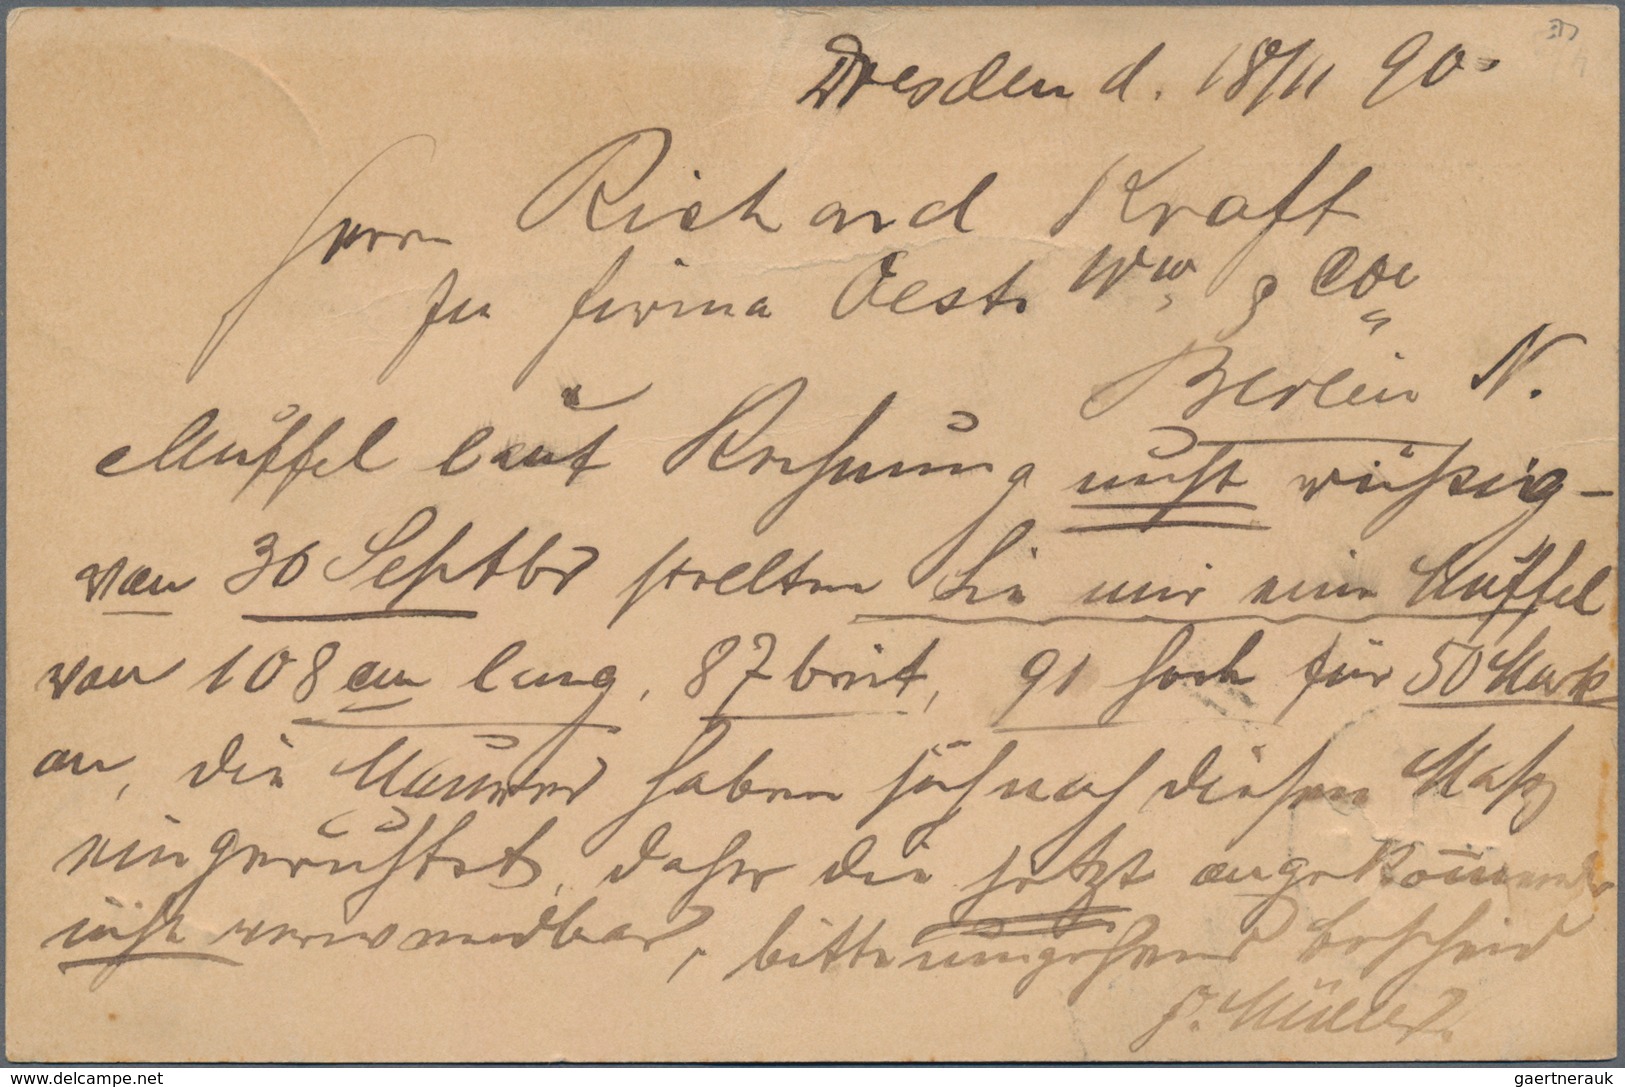 Dresden d. 18/11 90.
Herrn Richard Kraft
in firma Oest Ww & Coe
Berlin N.
Muffel laut Rechnung nicht
von 30 Septbr stellten Sie mir eine Muffel
von 108 cm lang, 87 breit, 91 hoch für 50 Mark
an, die Maurer haben sich nach diesen Maß
eingerichtet, daher die jetzt angekommene
nicht verwendbar, bitte umgehend bescheid
Müller
delcampe.net
gaertnerauk